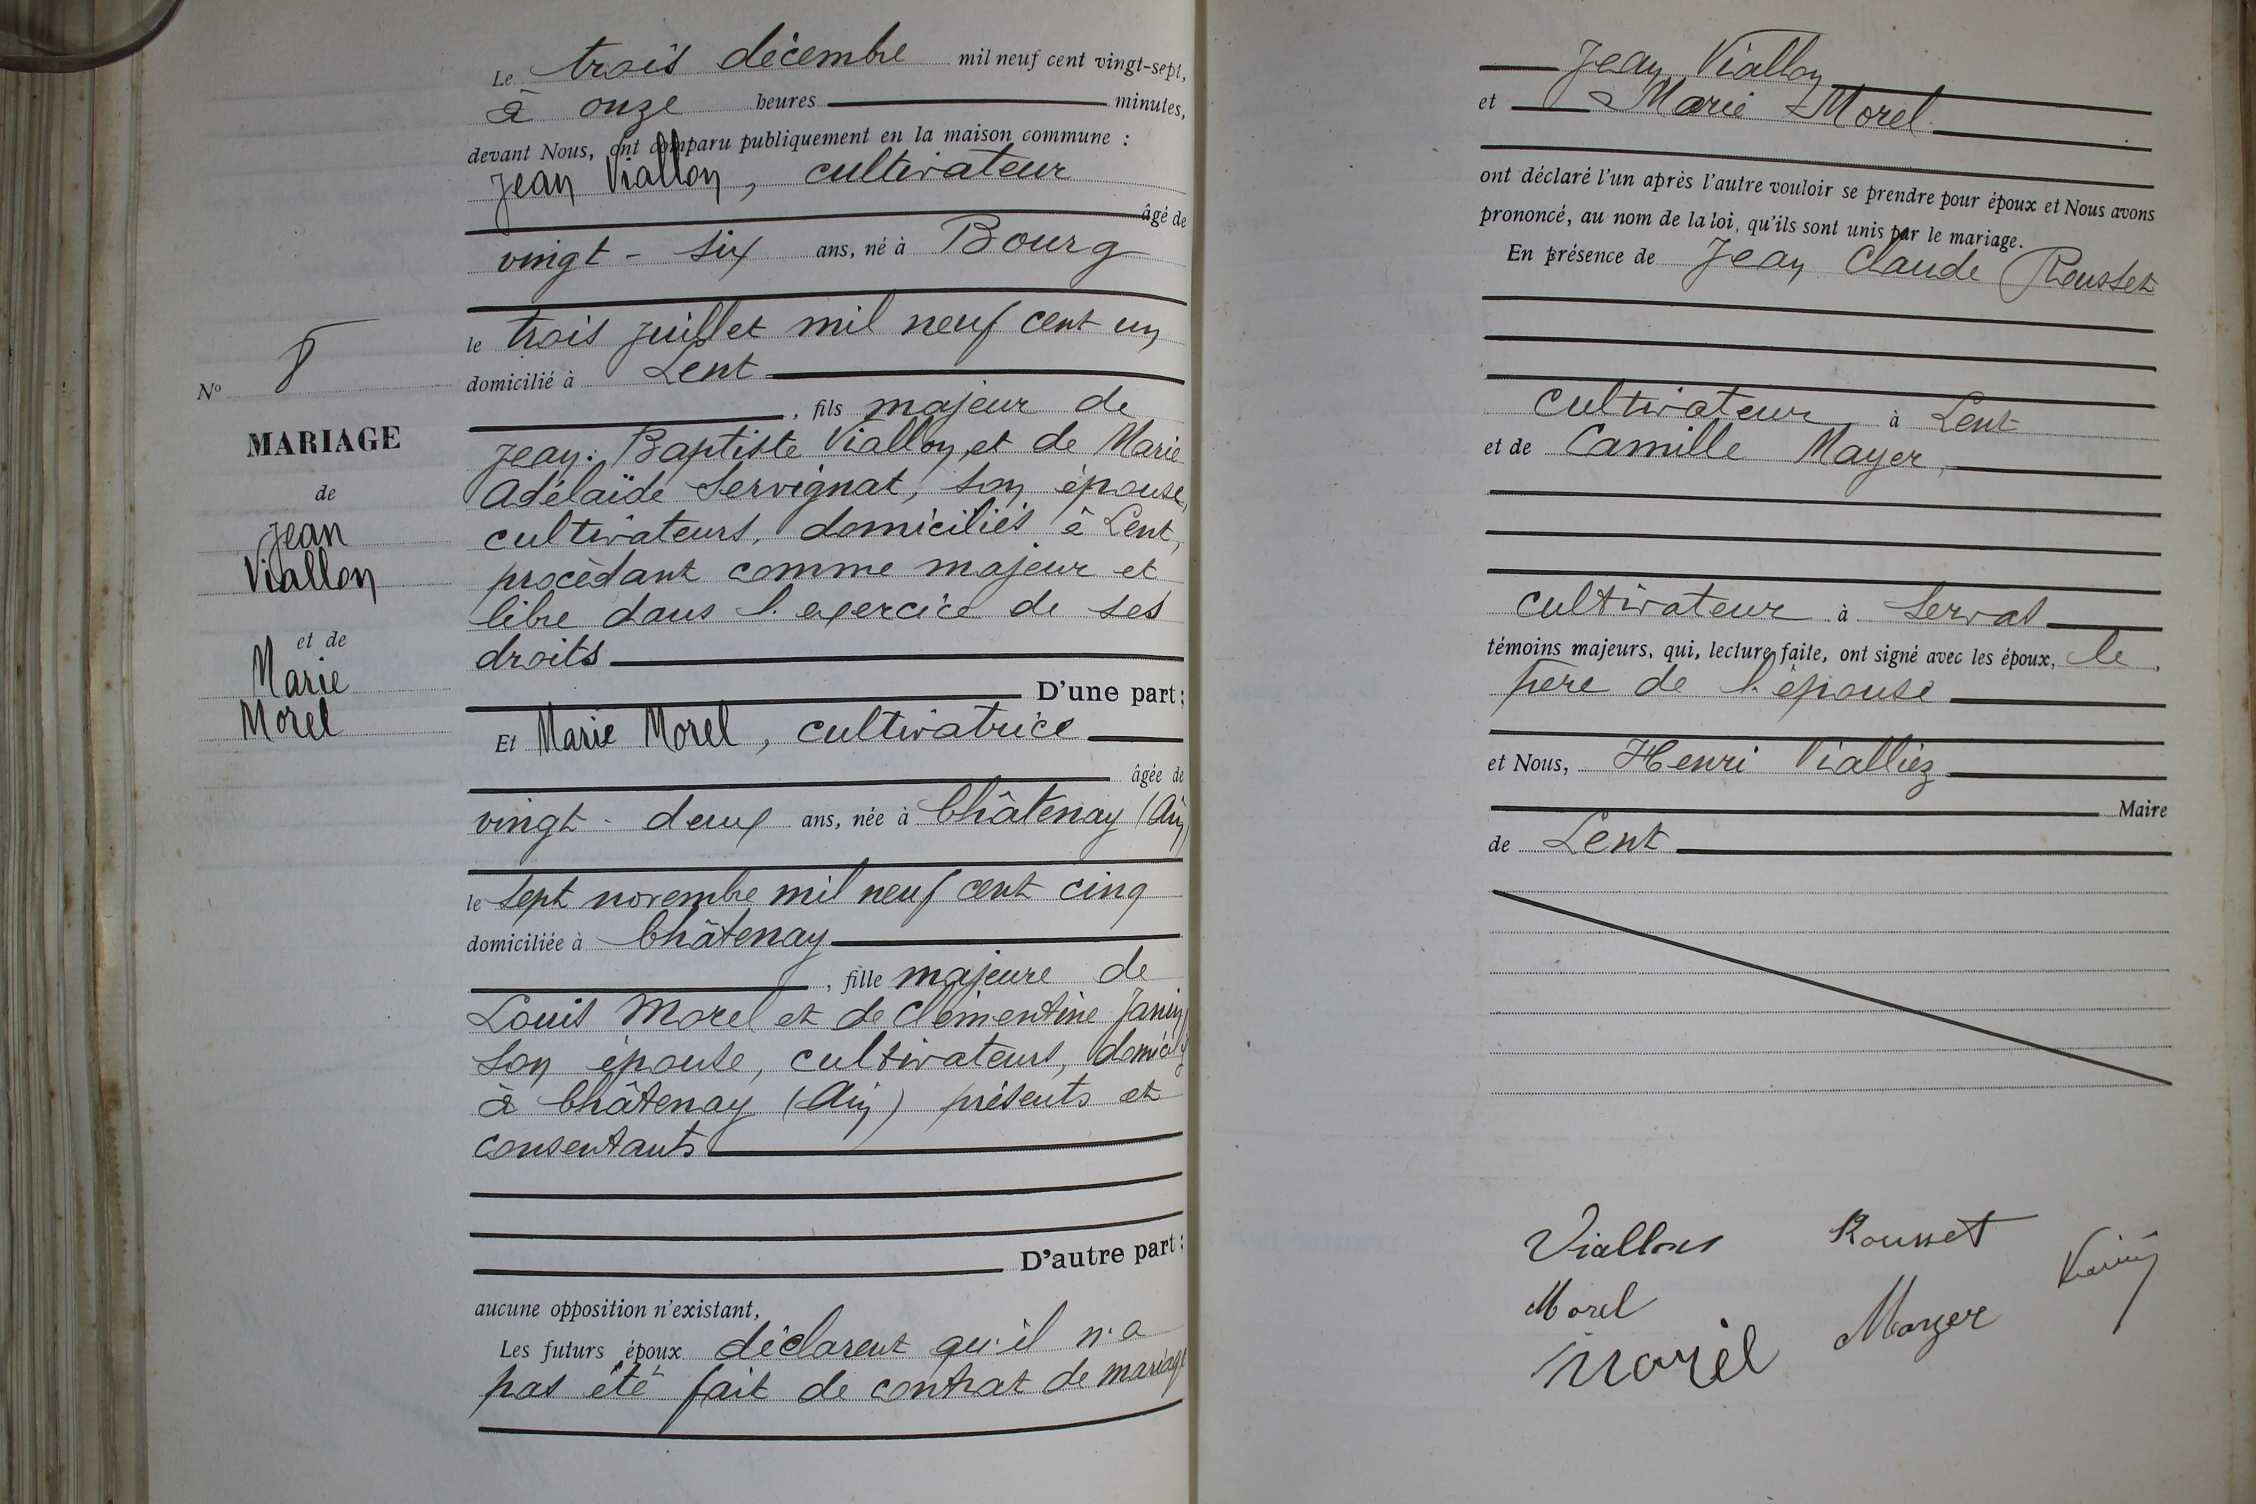 Nº 8
MARIAGE
de
Jean
Viallon
et de
Marie
Morel
Le trois décembre mil neuf cent vingt-sept,
à onze heures minutes,
devant Nous, ont comparu publiquement en la maison commune :
Jean Viallon, cultivateur
âgé de
vingt-six ans, né à Bourg
le trois juillet mil neuf cent un
domicilié à Lent
, fils majeur de
Jean-Baptiste Viallon et de Marie
Adélaïde Servignat, son épouse,
cultivateurs, domiciliés à Lent,
procédant comme majeur et
libre dans l'exercice de ses
droits
D'une part ;
Et Marie Morel, cultivatrice
âgée de
vingt-deux ans, née à Châtenay (Ain)
le sept novembre mil neuf cent cinq
domiciliée à Châtenay
, fille majeure de
Louis Morel et de Clémentine Janin
son épouse, cultivateurs, domiciliés
à Châtenay (Ain) présents et
consentants
D'autre part ;
aucune opposition n'existant,
Les futurs époux déclarent qu'il n'a
pas été fait de contrat de mariage
Jean Viallon
et Marie Morel
ont déclaré l'un après l'autre vouloir se prendre pour époux et Nous avons
prononcé, au nom de la loi, qu'ils sont unis par le mariage.
En présence de Jean Claude Rousset
cultivateur à Lent
et de Camille Mayer,
cultivateur à Servas
témoins majeurs, qui, lecture faite, ont signé avec les époux, le
père de l'épouse
et Nous, Henri Vialliez
Maire
de Lent
Viallon Rousset
Morel Mayer
Morel